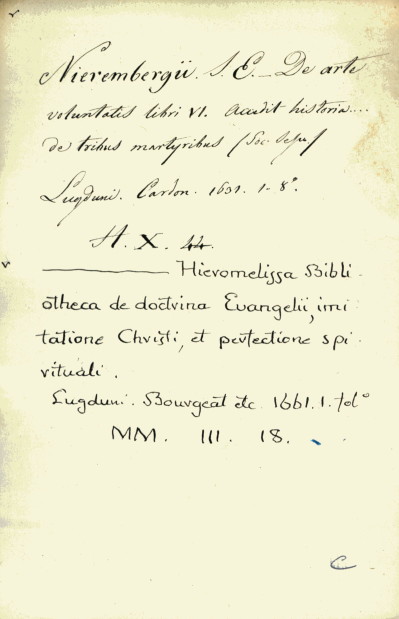 Nierembergii. S. E. _ De arte
voluntatis libri VI. Accedit historia...
de tribus martyribus (Soc. Jesu)
Lugduni. Cardon. 1631. 1-8°.
H. X. 44.
——— Hieromelissa Bibli-
otheca de doctrina Evangelii, imi
tatione Christi, et perfectione spi-
rituali.
Lugduni. Bourgeat etc. 1661. 1. fol°
MM. III. 18.
C